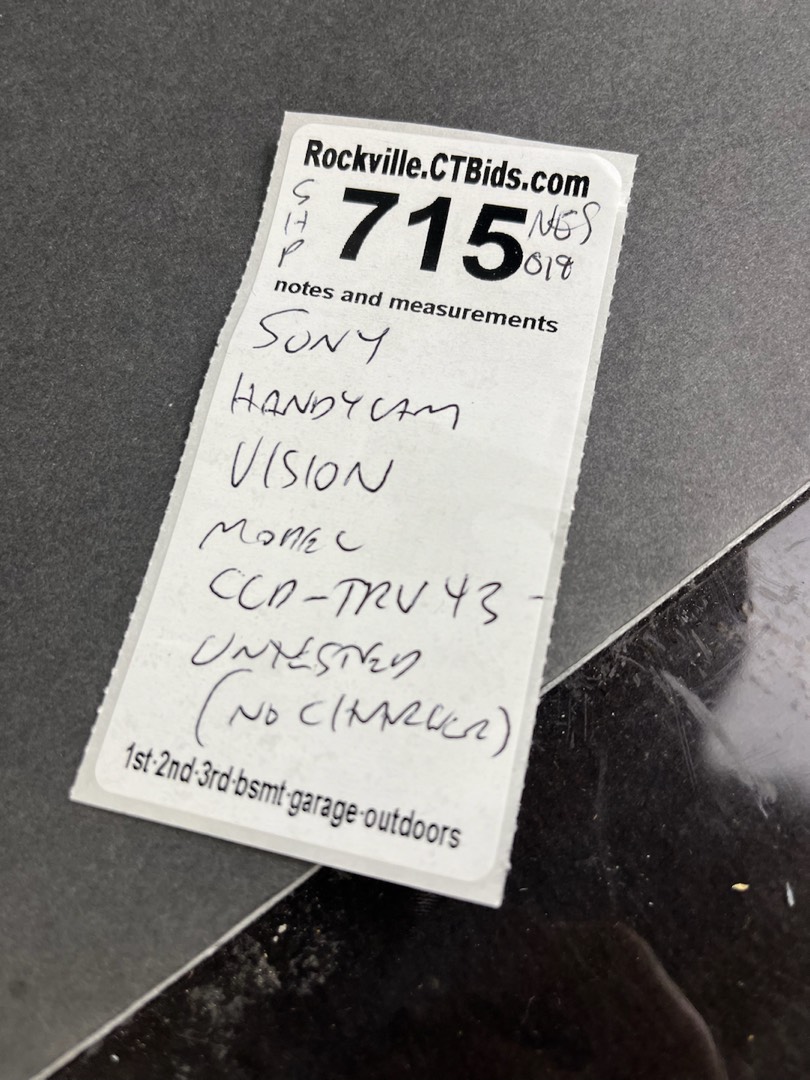 Rockville.CTBids.com
SHP 715 NES 018
notes and measurements
SONY
HANDYCAM
VISION
MODEL
CCD-TRV43-
UNTESTED
(NO CHARGER)
1st-2nd-3rd-bsmt-garage-outdoors